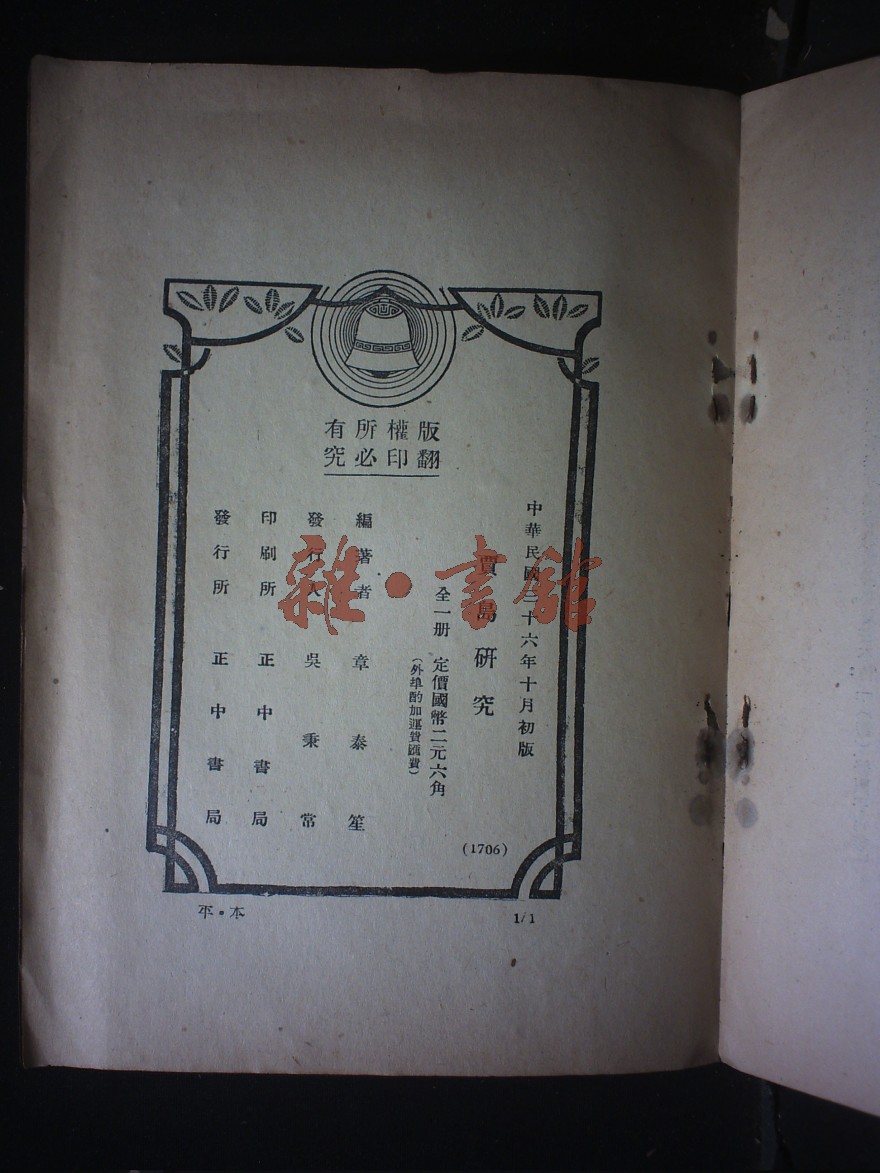 版權所有
翻印必究
中華民國三十六年十月初版
賈島研究
全一册 定價國幣二元六角
(外埠酌加運費匯費)
編著者 章泰笙
發行人 吳秉常
印刷所 正中書局
發行所 正中書局
(1706)
平·本
1/1
雜·書館